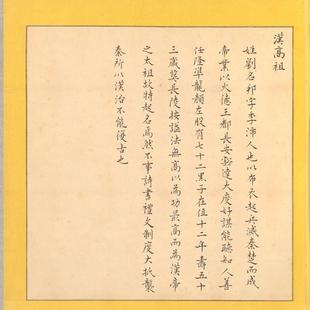 漢高祖
姓劉名邦字季沛人也以布衣起兵滅秦楚而成
帝業以火德王都長安豁達大度好謀能聽知人善
任隆準龍顏左股有七十二黑子在位十二年壽五十
三歲葬長陵按謚法無高以為功最高而為漢帝
之太祖故特起名焉然不事詩書禮文制度大抵襲
秦所以漢治不能復古也